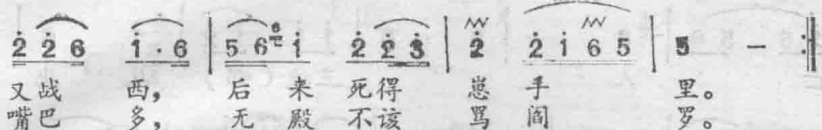 2̇ 2̇ 6 1̇ · 6 | 5 6 6 1̇ 2̇ 2̇ 3̇ | 2̇ 2̇ 1̇ 6 5 | 5 – :||
又战 西， 后 来 死得 崽 手 里。
嘴巴 多， 无 殿 不该 骂 阎 罗。